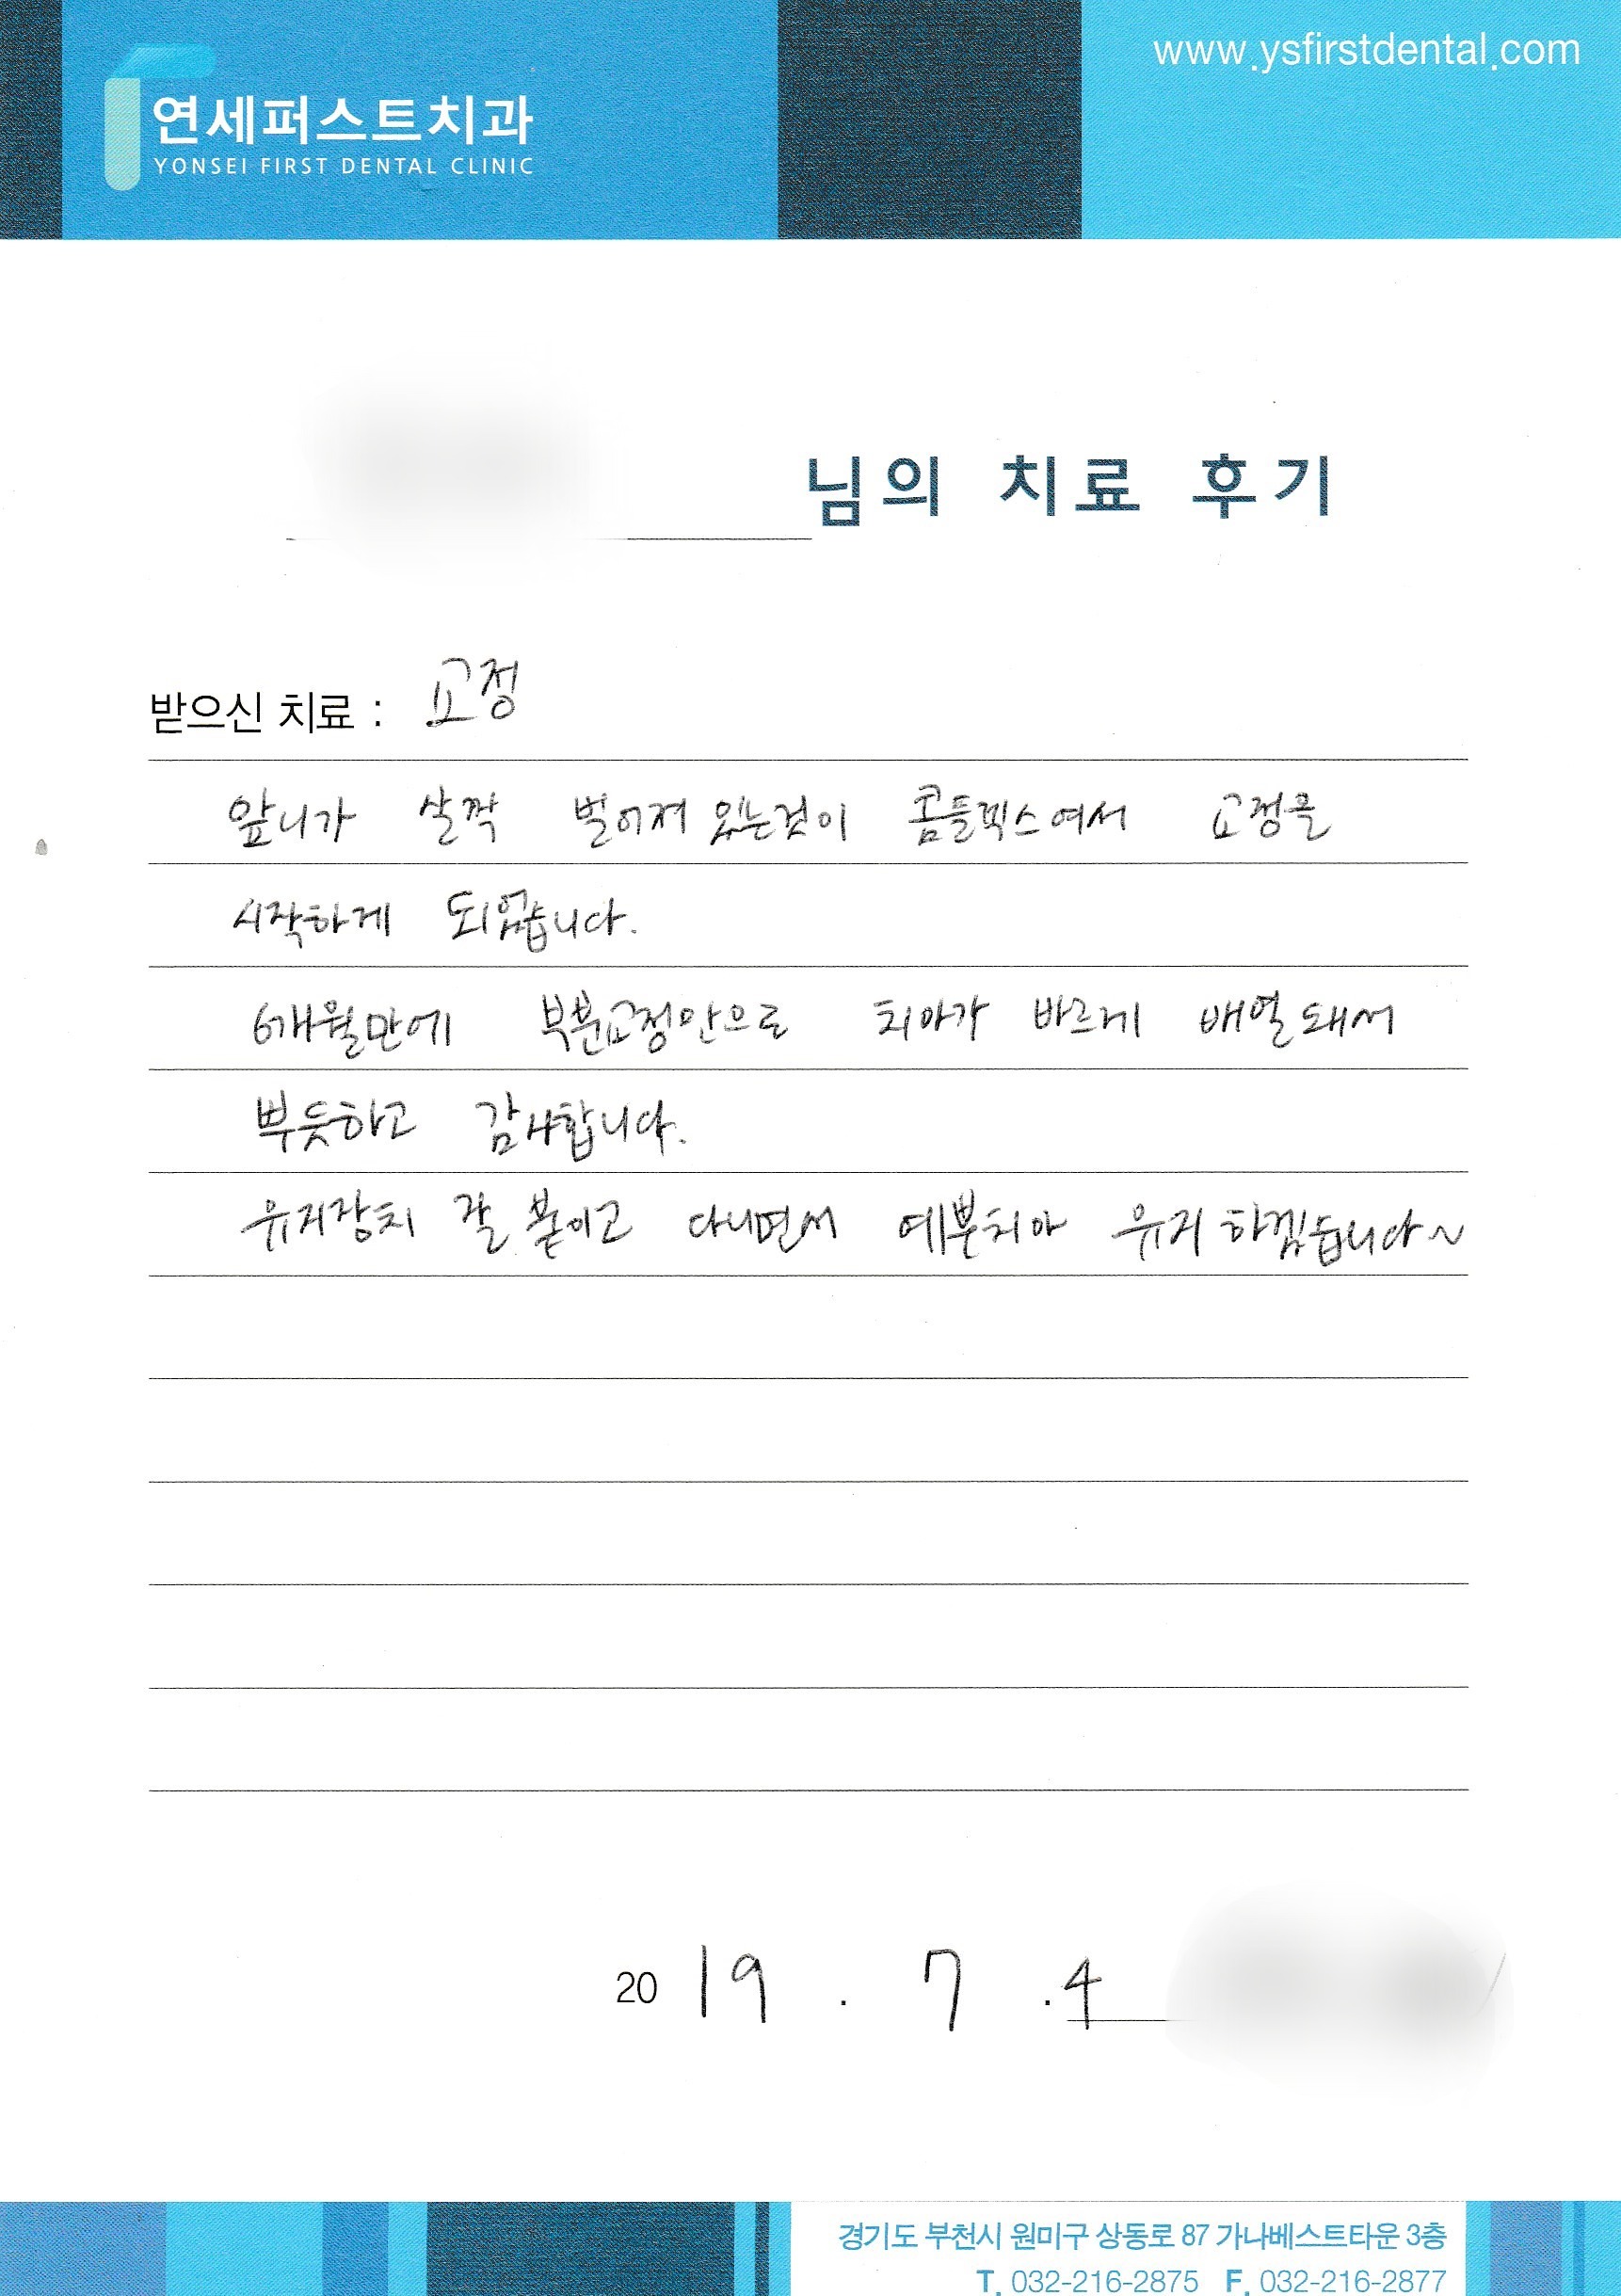 www.ysfirstdental.com
연세퍼스트치과
YONSEI FIRST DENTAL CLINIC
님의 치료 후기
받으신 치료 : 교정
앞니가 살짝 벌어져 있는것이 콤플렉스여서 교정을
시작하게 되었습니다.
6개월만에 부분교정만으로 치아가 바르게 배열돼서
뿌듯하고 감사합니다.
유지장치 잘 붙이고 다니면서 예쁜치아 유지 하겠습니다~
2019 . 7 . 4
경기도 부천시 원미구 상동로 87 가나베스트타운 3층
T. 032-216-2875 F. 032-216-2877